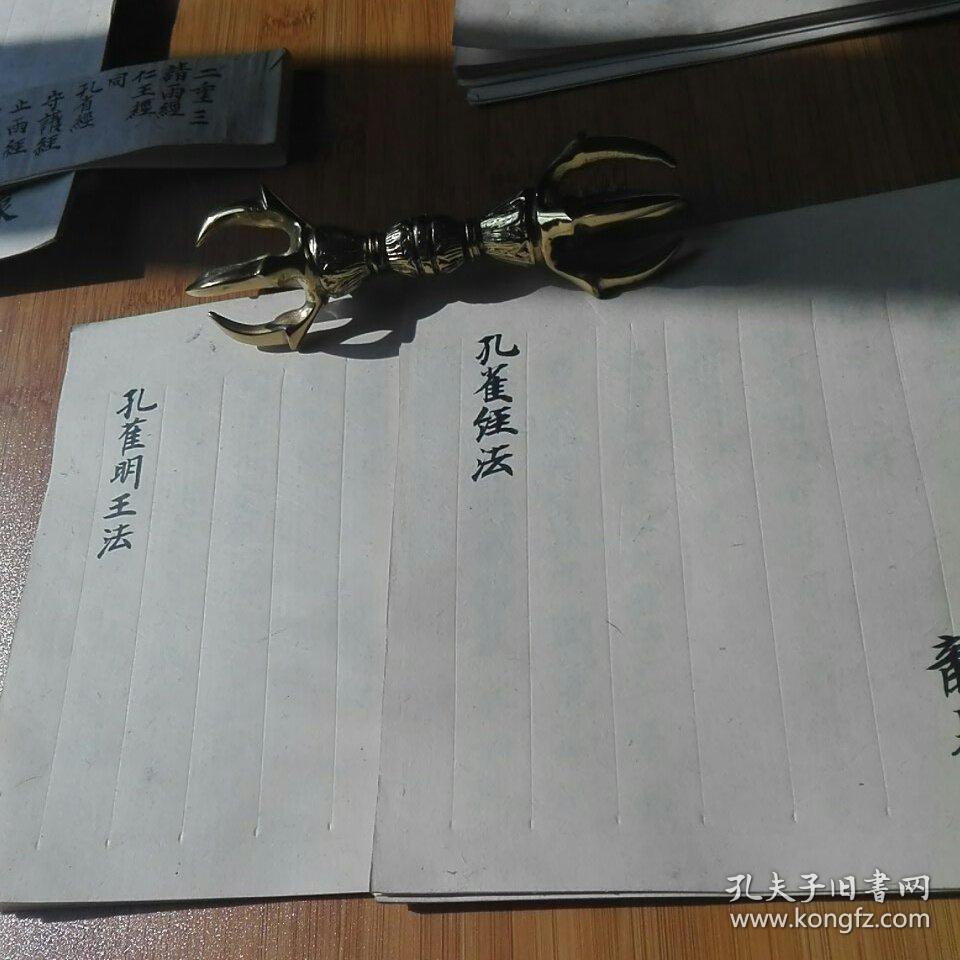 二重三
請雨經
仁王經
同
孔雀經
守護經
止雨経
孔雀経法
孔雀明王法
孔夫子旧書网
www.kongfz.com